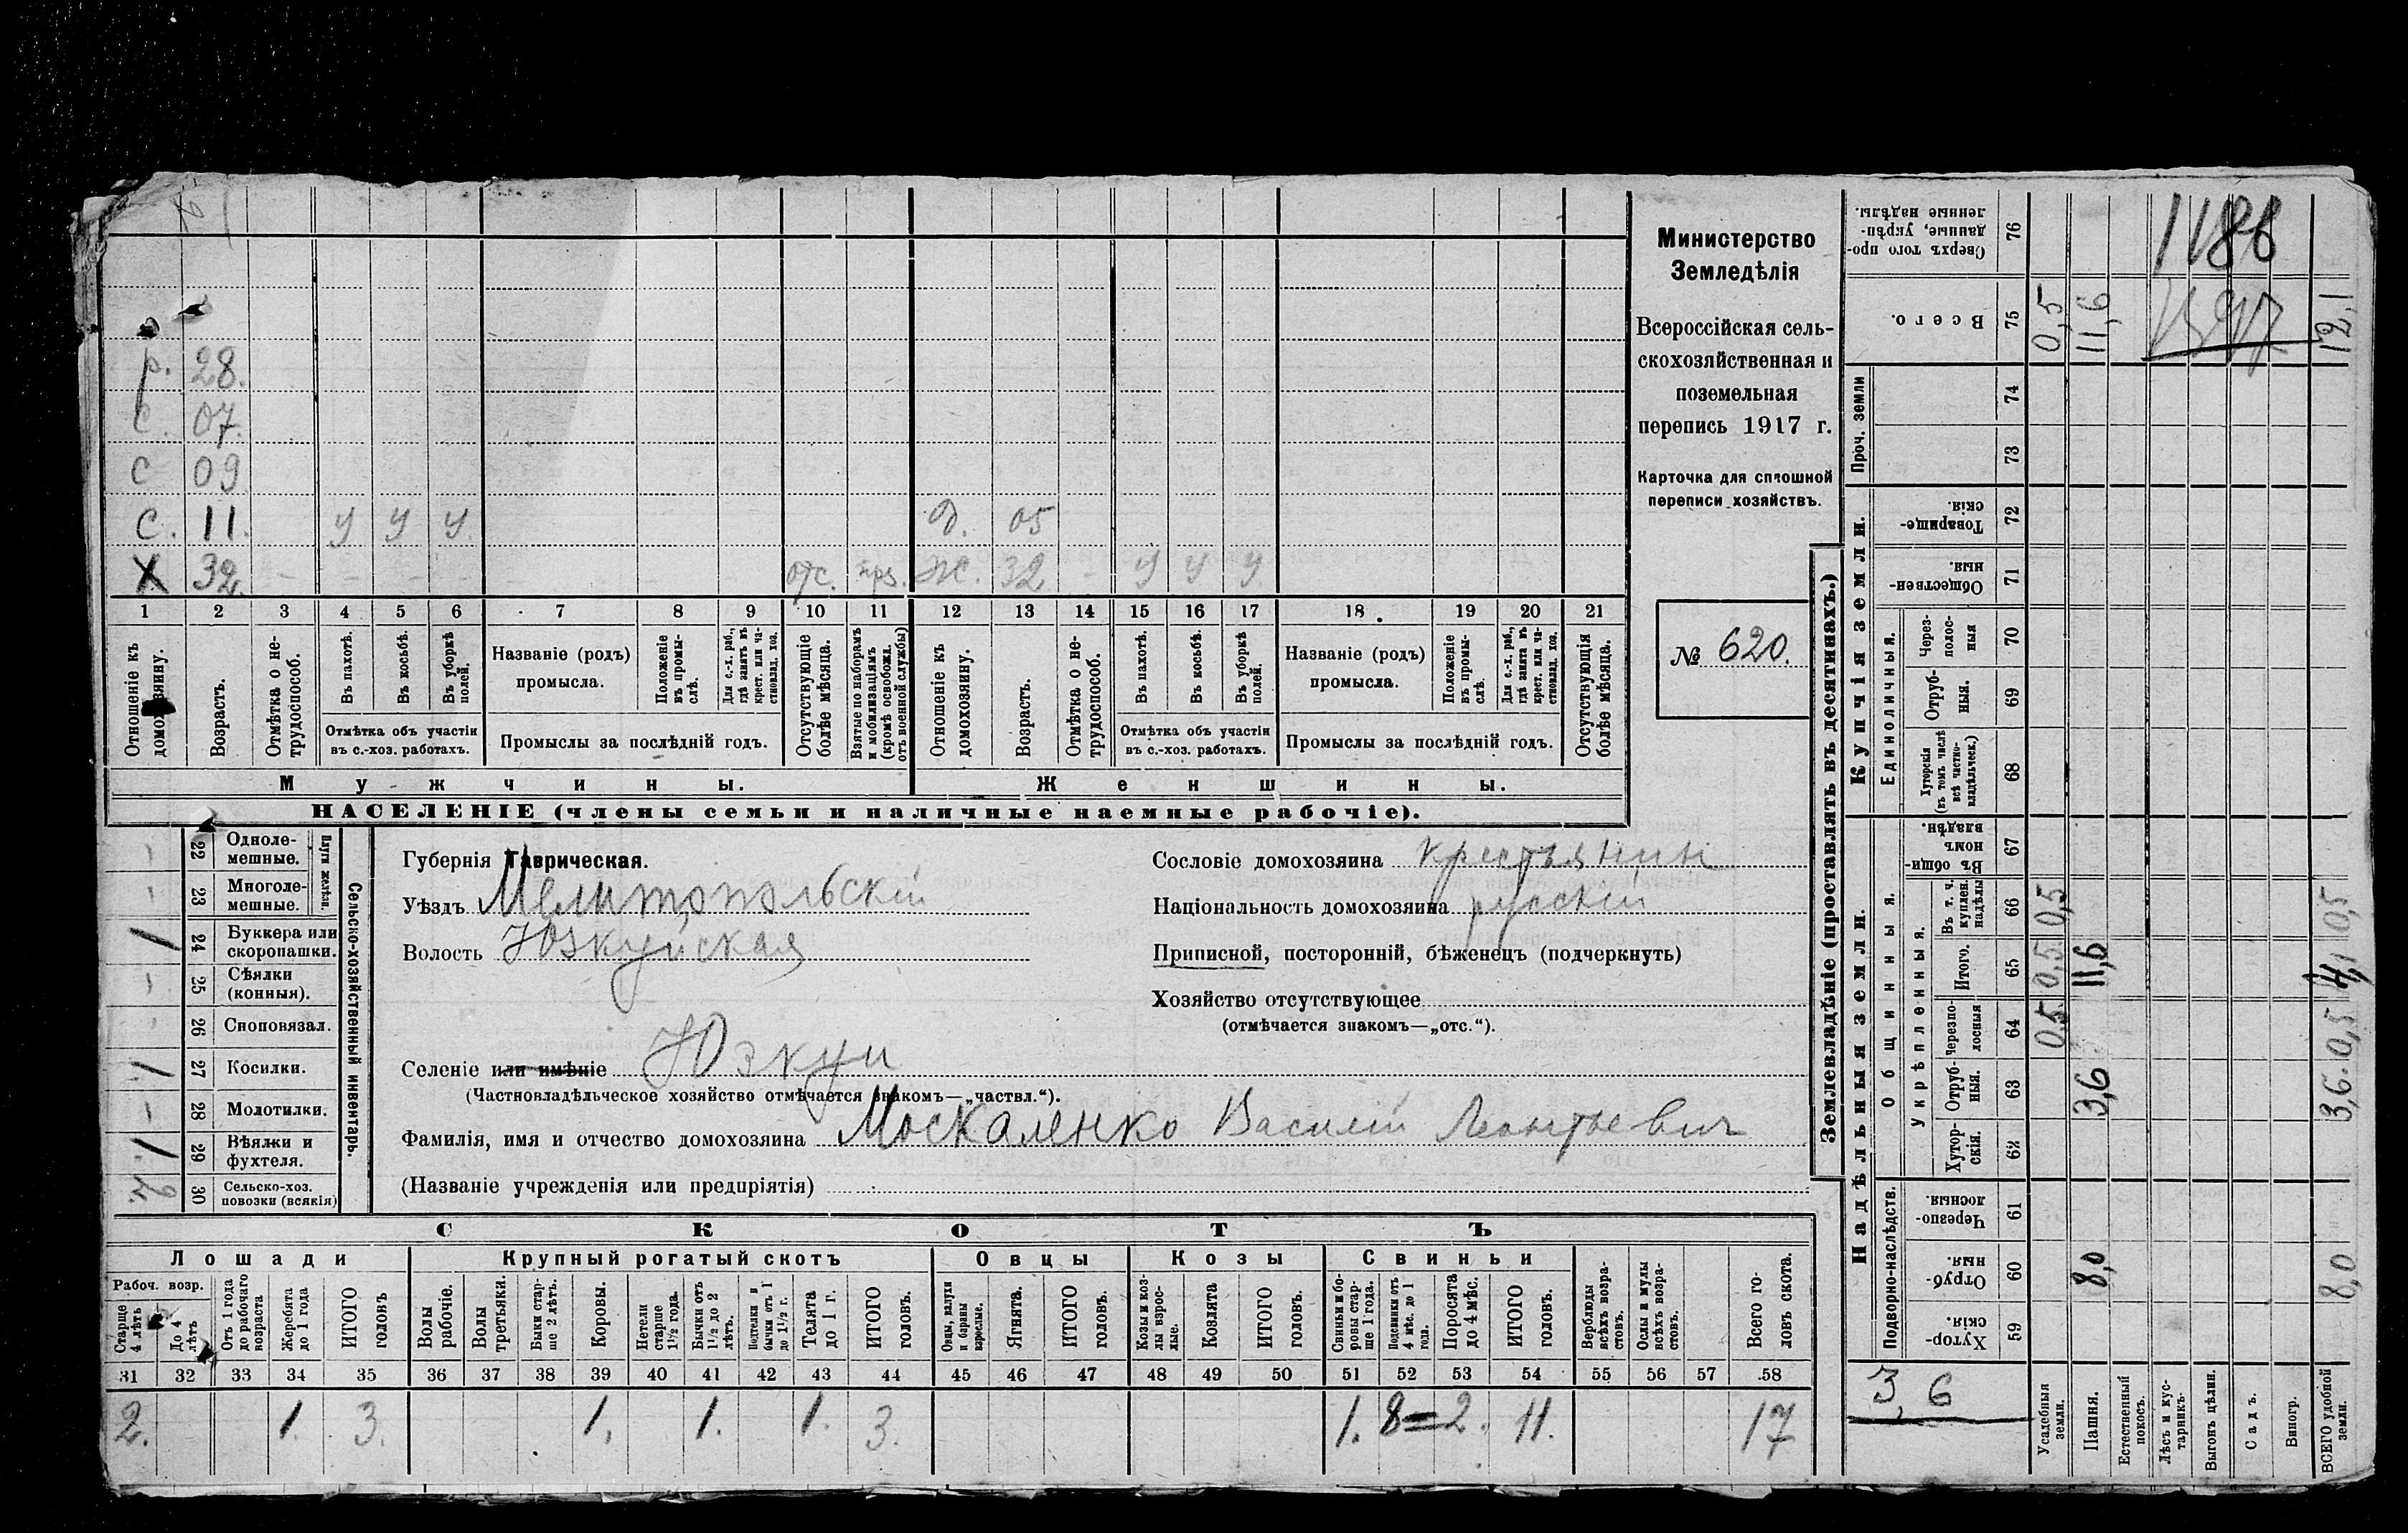 р. 28.
с. 07.
с 09
с. 11. у у у. д. 05
Х. 32. отс. прз. ж. 32 у у у
1 2 3 4 5 6 7 8 9 10 11 12 13 14 15 16 17 18 19 20 21
Отношеніе къ домохозяину.
Возрастъ.
Отмѣтка о нетрудоспособ.
Въ пахотѣ.
Въ косьбѣ.
Въ уборкѣ полей.
Отмѣтка объ участіи въ с.-хоз. работахъ.
Названіе (родъ) промысла.
Положеніе въ промыслѣ.
Для с.-х. раб., гдѣ занятъ въ крест. или частновлад. хоз.
Промыслы за послѣдній годъ.
Отсутствующіе болѣе мѣсяца.
Взятые по наборамъ и мобилизаціямъ (кромѣ освобожд. отъ военной службы)
Отношеніе къ домохозяину.
Возрастъ.
Отмѣтка о нетрудоспособ.
Въ пахотѣ.
Въ косьбѣ.
Въ уборкѣ полей.
Отмѣтка объ участіи въ с.-хоз. работахъ.
Названіе (родъ) промысла.
Положеніе въ промыслѣ.
Для с.-х. раб., гдѣ занята въ крест. или частновлад. хоз.
Промыслы за послѣдній годъ.
Отсутствующія болѣе мѣсяца.
Мужчины. Женщины.
НАСЕЛЕНІЕ (члены семьи и наличные наемные рабочіе).
Министерство
Земледѣлія
Всероссійская сель-
скохозяйственная и
поземельная
перепись 1917 г.
Карточка для сплошной
переписи хозяйствъ.
№ 620.
Сельско-хозяйственный инвентарь.
Плуги желѣзн.
22 Одноле-
мешные.
23 Многоле-
мешные.
1 24 Буккера или
скоропашки.
25 Сѣялки
(конныя).
26 Сноповязал.
1 27 Косилки.
28 Молотилки.
1 29 Вѣялки и
фухтеля.
30 Сельско-хоз.
повозки (всякія)
Губернія Таврическая.
Уѣздъ Мелитопольскій
Волость Юзкуйская
Селеніе или имѣніе Юзкуи
(Частновладѣльческое хозяйство отмѣчается знакомъ—„частвл.“).
Фамилія, имя и отчество домохозяина Москаленко Василій Леонтьевич
(Названіе учрежденія или предпріятія)
Сословіе домохозяина крестьянин
Національность домохозяина русскій
Приписной, посторонній, бѣженецъ (подчеркнуть)
Хозяйство отсутствующее
(отмѣчается знакомъ—„отс.“).
СКОТЪ
Лошади Крупный рогатый скотъ Овцы Козы Свиньи
Рабоч. возр.
Старше 4 лѣтъ
До 4 лѣтъ
Отъ 1 года до рабочаго возраста
Жеребята до 1 года
ИТОГО головъ
Волы рабочіе.
Волы третьяки.
Быки старше 2 лѣтъ.
Коровы.
Нетели старше 1½ года.
Бычки отъ 1½ до 2 лѣтъ.
Подтелки и бычки отъ 1 до 1½ г.
Телята до 1 г.
ИТОГО головъ.
Овцы, валухи и бараны взрослые.
Ягнята.
ИТОГО головъ.
Козы и козлы взрослые.
Козлята
ИТОГО головъ.
Свиньи и боровы старше 1 года.
Подсвинки отъ 4 мѣс. до 1 года.
Поросята до 4 мѣс.
ИТОГО головъ.
Верблюды всѣхъ возрастовъ.
Ослы и мулы всѣхъ возрастовъ.
Всего головъ скота.
31 32 33 34 35 36 37 38 39 40 41 42 43 44 45 46 47 48 49 50 51 52 53 54 55 56 57 58
2. 1. 3. 1. 1. 1. 3. 1. 8 2. 11. 17
Землевладѣніе (проставлять въ десятинахъ.)
Надѣльныя земли. Купчія земли.
Подворно-наслѣдств. Общинныя. Укрѣпленныя. Единоличныя. Проч. земли
59 Хуторскія.
60 Отрубныя.
61 Черезполосныя.
62 Хуторскія.
63 Отрубныя.
64 Черезполосныя
65 Итого.
66 Въ т. ч. куплен. надѣлы
67 Въ общинномъ владѣн.
68 Хуторскія (въ томъ числѣ всѣ частновладѣльческ.)
69 Отрубныя.
70 Черезполосныя
71 Общественныя.
72 Товарищескія.
73
74
75 Всего.
76 Сверхъ того проданные, укрѣпленные надѣлы.
Усадебныя земли. 0,5 0,5 0,5 0,5
Пашня. 8,0 3,6 11,6 11,6
Естественный покосъ.
Лѣсъ и кустарникъ.
Выгонъ цѣлин.
Садъ.
Виногр.
ВСЕГО удобной земли. 8,0 3,6. 0,5 4,1 0,5 12,1
3,6
1188